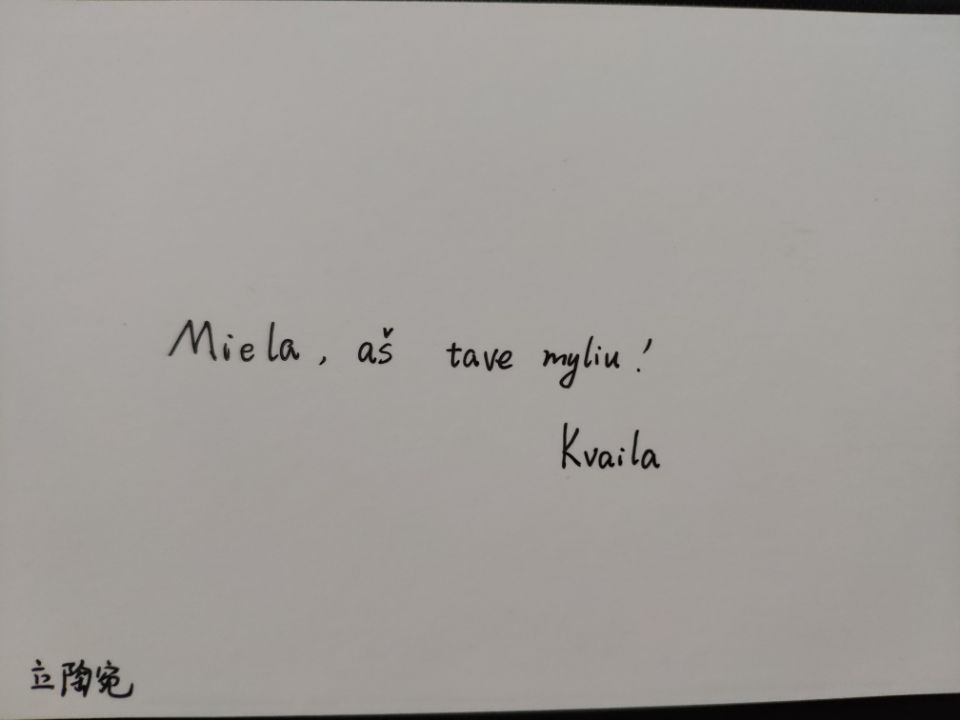 Miela, aš tave myliu!
Kvaila
立陶宛